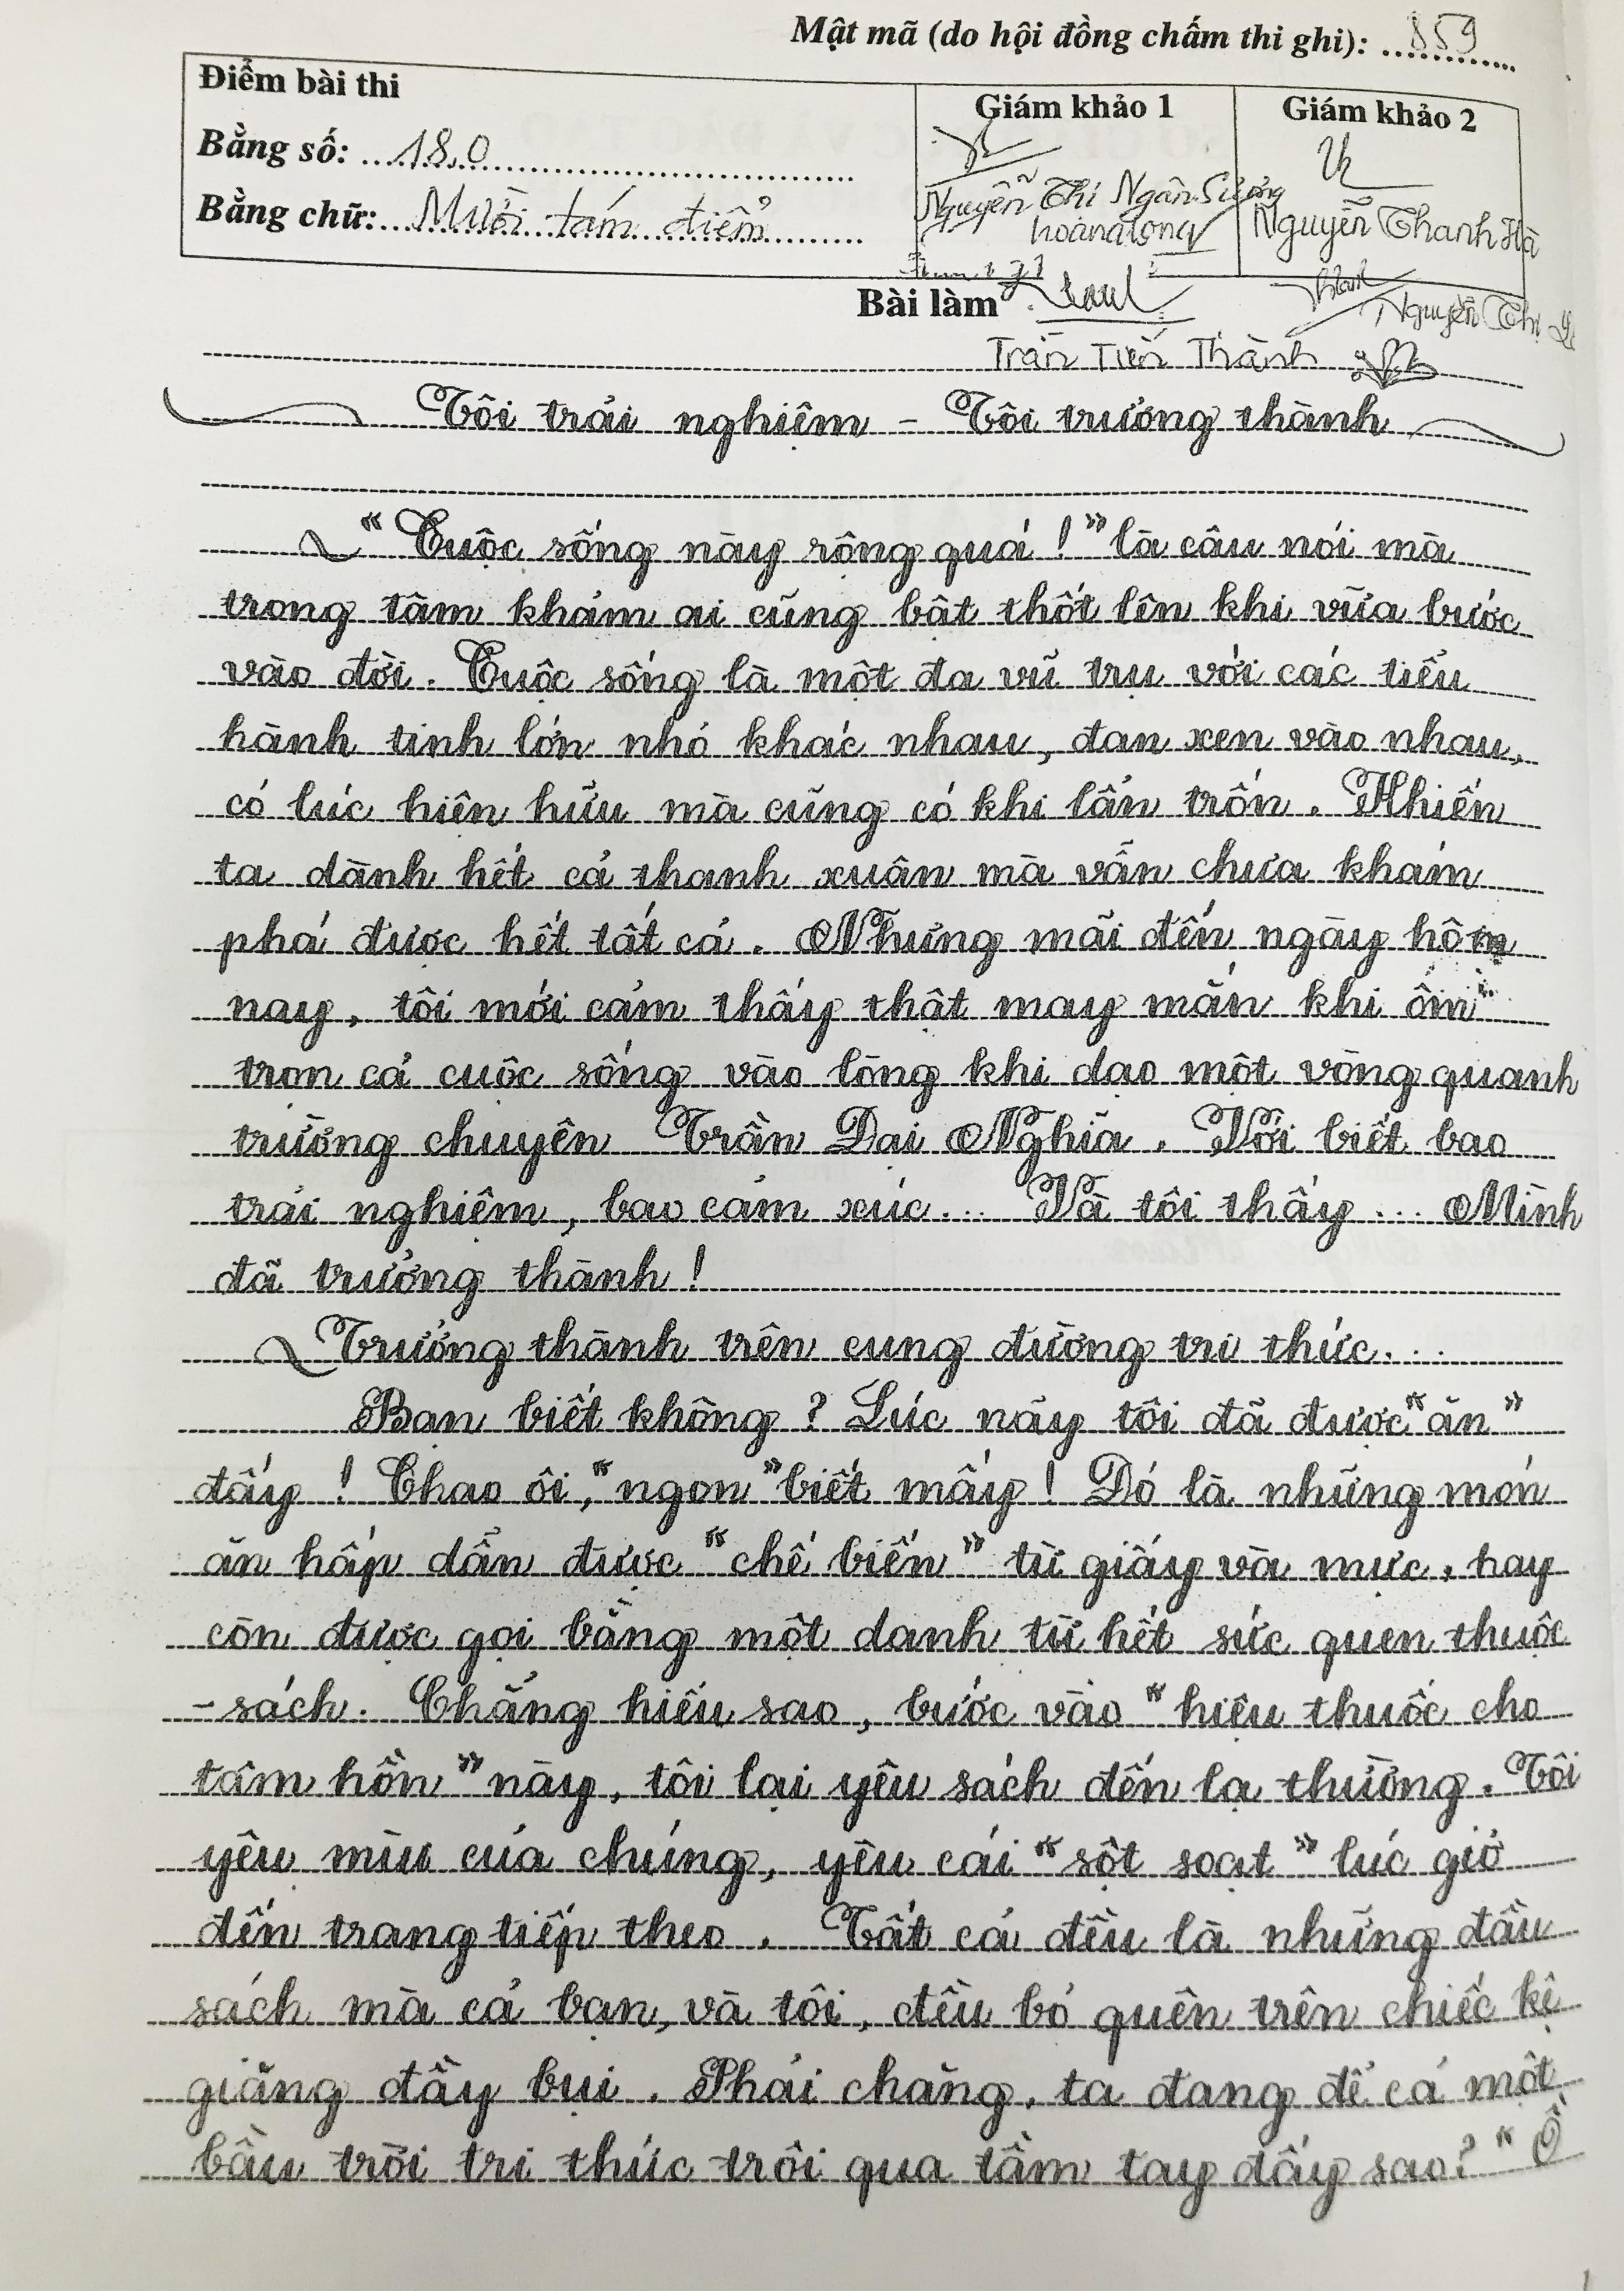 Mật mã (do hội đồng chấm thi ghi): 859
Điểm bài thi
Giám khảo 1
Giám khảo 2
Bằng số: 18,0
Bằng chữ: Mười tám điểm
Nguyễn Thị Ngân Sương
Nguyễn Thanh Hà
Bài làm
Nguyễn Thị
Trần Tiến Thành
Tôi trải nghiệm - Tôi trưởng thành
"Cuộc sống này rộng quá!" là câu nói mà
trong tâm khảm ai cũng bật thốt lên khi vừa bước
vào đời. Cuộc sống là một đa vũ trụ với các tiểu
hành tinh lớn nhỏ khác nhau, đan xen vào nhau,
có lúc hiện hữu mà cũng có khi lẩn trốn. Khiến
ta dành hết cả thanh xuân mà vẫn chưa khám
phá được hết tất cả. Nhưng mãi đến ngày hôm
nay, tôi mới cảm thấy thật may mắn khi ôm
trọn cả cuộc sống vào lòng khi dạo một vòng quanh
trường chuyên Trần Đại Nghĩa. Với biết bao
trải nghiệm, bao cảm xúc... Và tôi thấy... Mình
đã trưởng thành!
Trưởng thành trên cung đường tri thức...
Bạn biết không? Lúc nãy tôi đã được "ăn"
đấy! Chao ôi, "ngon" biết mấy! Đó là những món
ăn hấp dẫn được "chế biến" từ giấy và mực, hay
còn được gọi bằng một danh từ hết sức quen thuộc
- sách. Chẳng hiểu sao, bước vào "hiệu thuốc cho
tâm hồn" này, tôi lại yêu sách đến lạ thường. Tôi
yêu mùi của chúng, yêu cái "sột soạt" lúc giở
đến trang tiếp theo. Tất cả đều là những đầu
sách mà cả bạn, và tôi, đều bỏ quên trên chiếc kệ
giăng đầy bụi. Phải chăng, ta đang để cả một
bầu trời tri thức trôi qua tầm tay đấy sao? "Ồ